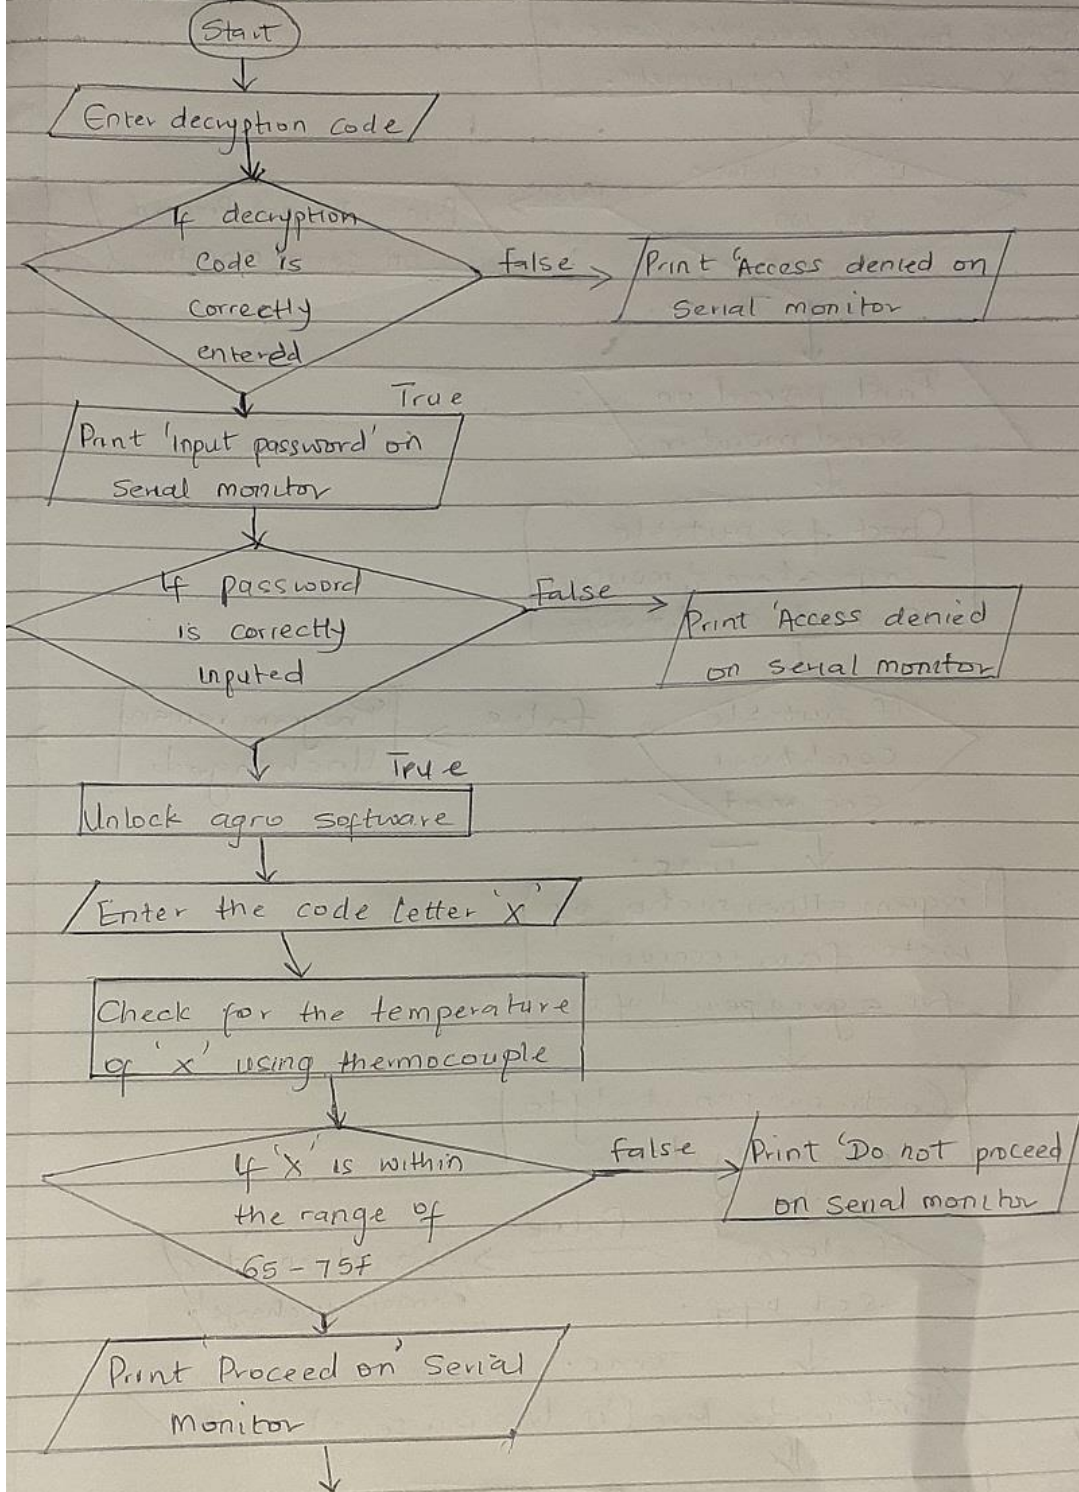 Start
Enter decryption code
If decryption
Code is
Correctly
entered
false
Print 'Access denied on
Serial monitor
True
Print 'Input password' on
Serial monitor
If password
is correctly
inputed
false
Print 'Access denied
on serial monitor
True
Unlock agro software
Enter the code letter 'x'
Check for the temperature
of 'x' using thermocouple
If 'x' is within
the range of
65-75F
false
Print 'Do not proceed
on serial monitor
Print 'Proceed on' Serial
Monitor